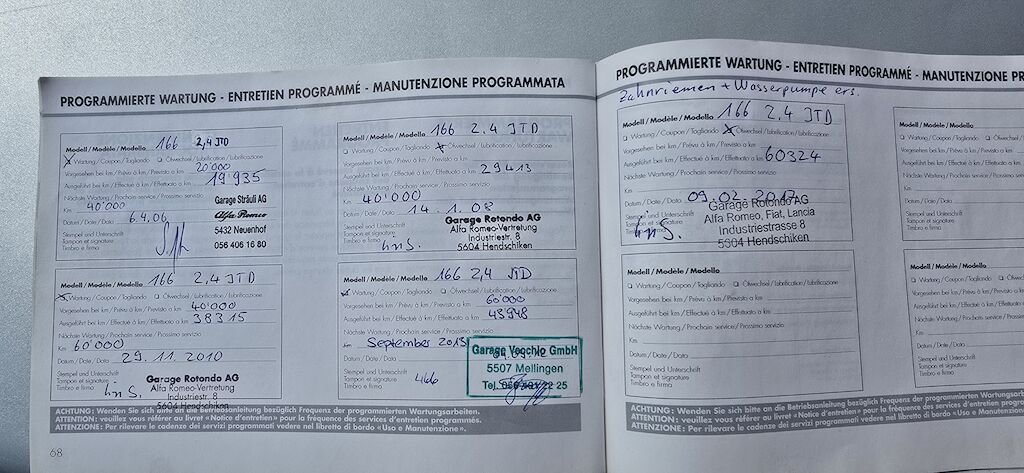 PROGRAMMIERTE WARTUNG - ENTRETIEN PROGRAMMÉ - MANUTENZIONE PROGRAMMATA
Modell / Modèle / Modello 166 2,4 JTD
x Wartung / Coupon / Tagliando ❏ Ölwechsel / Lubrification / Lubrificazione
Vorgesehen bei km / Prévu à km / Previsto a km 20'000
Ausgeführt bei km / Effectué à km / Effettuato a km 19'935
Nächste Wartung / Prochain service / Prossimo servizio
Km 40'000
Datum / Date / Data 6.4.06
Stempel und Unterschrift
Tampon et signature
Timbro e firma
Garage Sträuli AG
Alfa Romeo
5432 Neuenhof
056 406 16 80
Modell / Modèle / Modello 166 2,4 JTD
❏ Wartung / Coupon / Tagliando x Ölwechsel / Lubrification / Lubrificazione
Vorgesehen bei km / Prévu à km / Previsto a km
Ausgeführt bei km / Effectué à km / Effettuato a km 29413
Nächste Wartung / Prochain service / Prossimo servizio
Km 40'000
Datum / Date / Data 14.1.08
Stempel und Unterschrift
Tampon et signature
Timbro e firma
Garage Rotondo AG
Alfa Romeo-Vertretung
Industriestr. 8
5604 Hendschiken
Modell / Modèle / Modello 166 2,4 JTD
x Wartung / Coupon / Tagliando ❏ Ölwechsel / Lubrification / Lubrificazione
Vorgesehen bei km / Prévu à km / Previsto a km 40'000
Ausgeführt bei km / Effectué à km / Effettuato a km 38315
Nächste Wartung / Prochain service / Prossimo servizio
Km 60'000
Datum / Date / Data 29.11.2010
Stempel und Unterschrift
Tampon et signature
Timbro e firma
Garage Rotondo AG
Alfa Romeo-Vertretung
Industriestr. 8
5604 Hendschiken
Modell / Modèle / Modello 166 2,4 JTD
x Wartung / Coupon / Tagliando ❏ Ölwechsel / Lubrification / Lubrificazione
Vorgesehen bei km / Prévu à km / Previsto a km 60'000
Ausgeführt bei km / Effectué à km / Effettuato a km 43948
Nächste Wartung / Prochain service / Prossimo servizio
Km September 2013
Datum / Date / Data
Stempel und Unterschrift
Tampon et signature
Timbro e firma
466
Garage Vecchio GmbH
5507 Mellingen
ACHTUNG: Wenden Sie sich bitte an die Betriebsanleitung bezüglich Frequenz der programmierten Wartungsarbeiten.
ATTENTION: veuillez vous référer au livret «Notice d'entretien» pour la fréquence des services d'entretien programmés.
ATTENZIONE: Per rilevare le cadenze dei servizi programmati vedere nel libretto di bordo «Uso e Manutenzione».
68
PROGRAMMIERTE WARTUNG - ENTRETIEN PROGRAMMÉ - MANUTENZIONE PR
Zahnriemen + Wasserpumpe ers.
Modell / Modèle / Modello 166 2,4 JTD
❏ Wartung / Coupon / Tagliando x Ölwechsel / Lubrification / Lubrificazione
Vorgesehen bei km / Prévu à km / Previsto a km
Ausgeführt bei km / Effectué à km / Effettuato a km 60324
Nächste Wartung / Prochain service / Prossimo servizio
Km
Datum / Date / Data 09.02.2017
Stempel und Unterschrift
Tampon et signature
Timbro e firma
Garage Rotondo AG
Alfa Romeo, Fiat, Lancia
Industriestrasse 8
5604 Hendschiken
Modell / Modèle / Modello
❏ Wartung / Coupon / Tagliando ❏
Vorgesehen bei km / Prévu à km
Ausgeführt bei km / Effectué
Nächste Wartung / Prochain service
Km
Datum / Date / Data
Stempel und Unterschrift
Tampon et signature
Timbro e firma
Modell / Modèle / Modello
❏ Wartung / Coupon / Tagliando ❏ Ölwechsel / Lubrification / Lubrificazione
Vorgesehen bei km / Prévu à km / Previsto a km
Ausgeführt bei km / Effectué à km / Effettuato a km
Nächste Wartung / Prochain service / Prossimo servizio
Km
Datum / Date / Data
Stempel und Unterschrift
Tampon et signature
Timbro e firma
Modell / Modèle / Modello
❏ Wartung / Coupon / Tagliando
Vorgesehen bei km / Prévu à km
Ausgeführt bei km / Effectué
Nächste Wartung / Prochain
Km
Datum / Date / Data
Stempel und Unterschrift
Tampon et signature
Timbro e firma
ACHTUNG: Wenden Sie sich bitte an die Betriebsanleitung bezüglich Frequenz der programmierten Wartungsarbeiten.
ATTENTION: veuillez vous référer au livret «Notice d'entretien» pour la fréquence des services d'entretien progra
ATTENZIONE: Per rilevare le cadenze dei servizi programmati vedere nel libretto di bordo «Uso e Manutenzione».